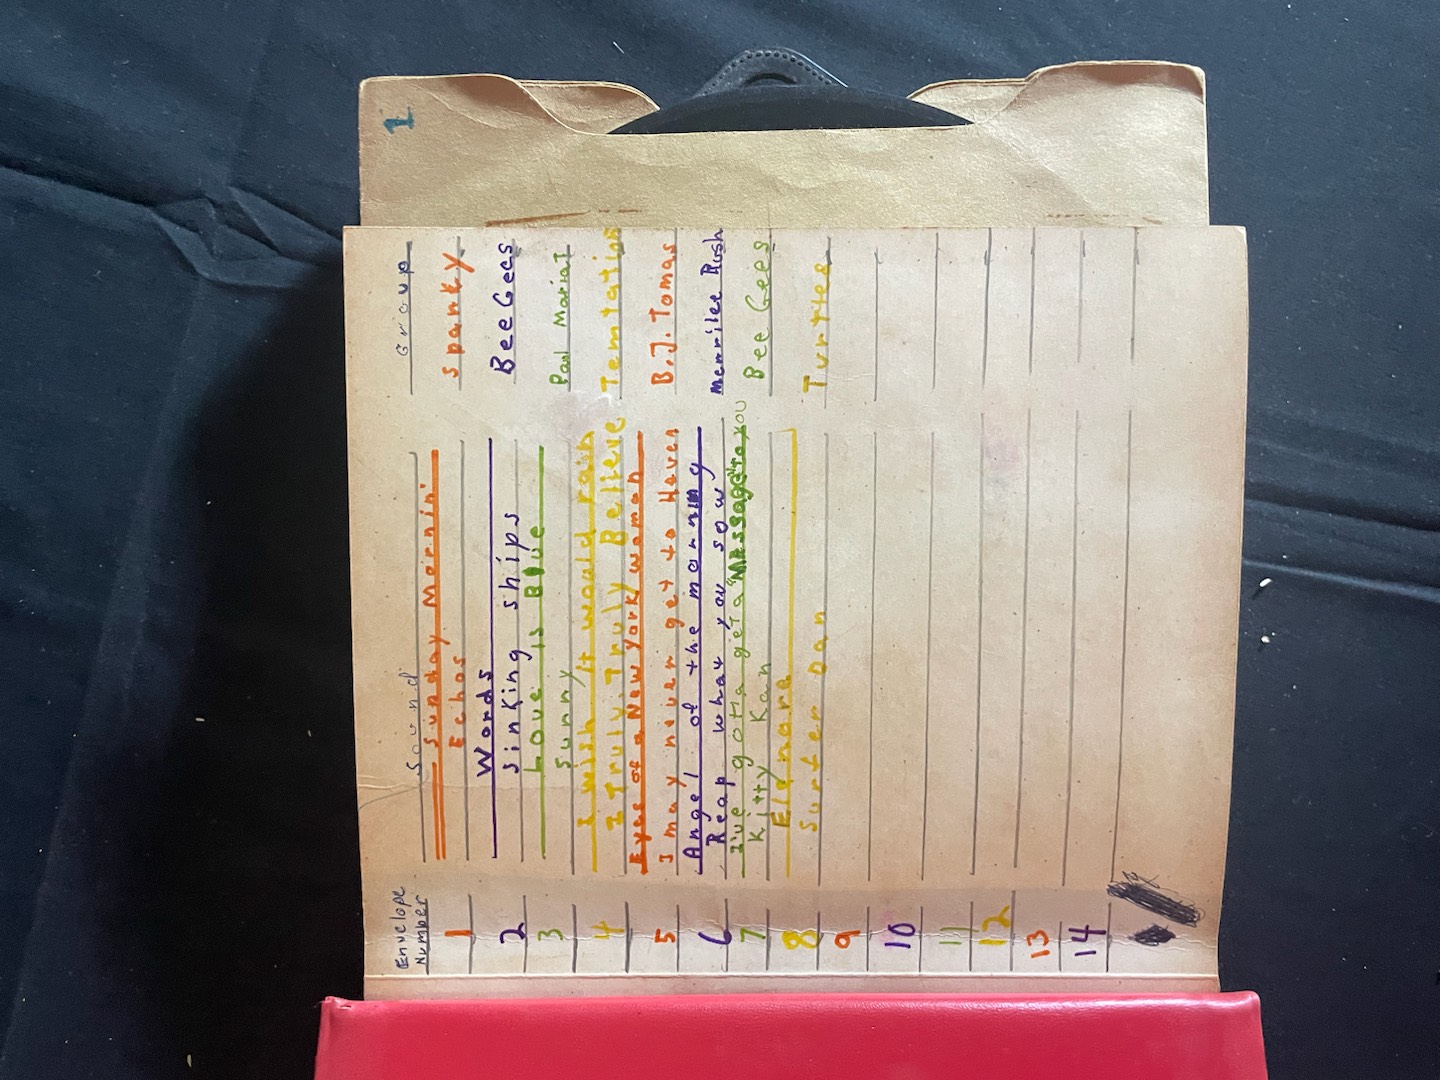 1
Envelope Number Sound Group
1 Sunday Mornin' Spanky
Echos
2 Words Bee Gees
Sinking ships
3 Love is Blue Paul Mariat
Sunny
4 I wish it would rain Temtation
I Truly, Truly Believe
5 Eyes of a New York woman B.J. Tomas
I may never get to Heven
6 Angel of the morning Merrilee Rush
Reap what you sow
7 I've gotta get a "Message to you Bee Gees
Kitty Kan
8 Elenore Turtles
Surfer Dan
9
10
11
12
13
14